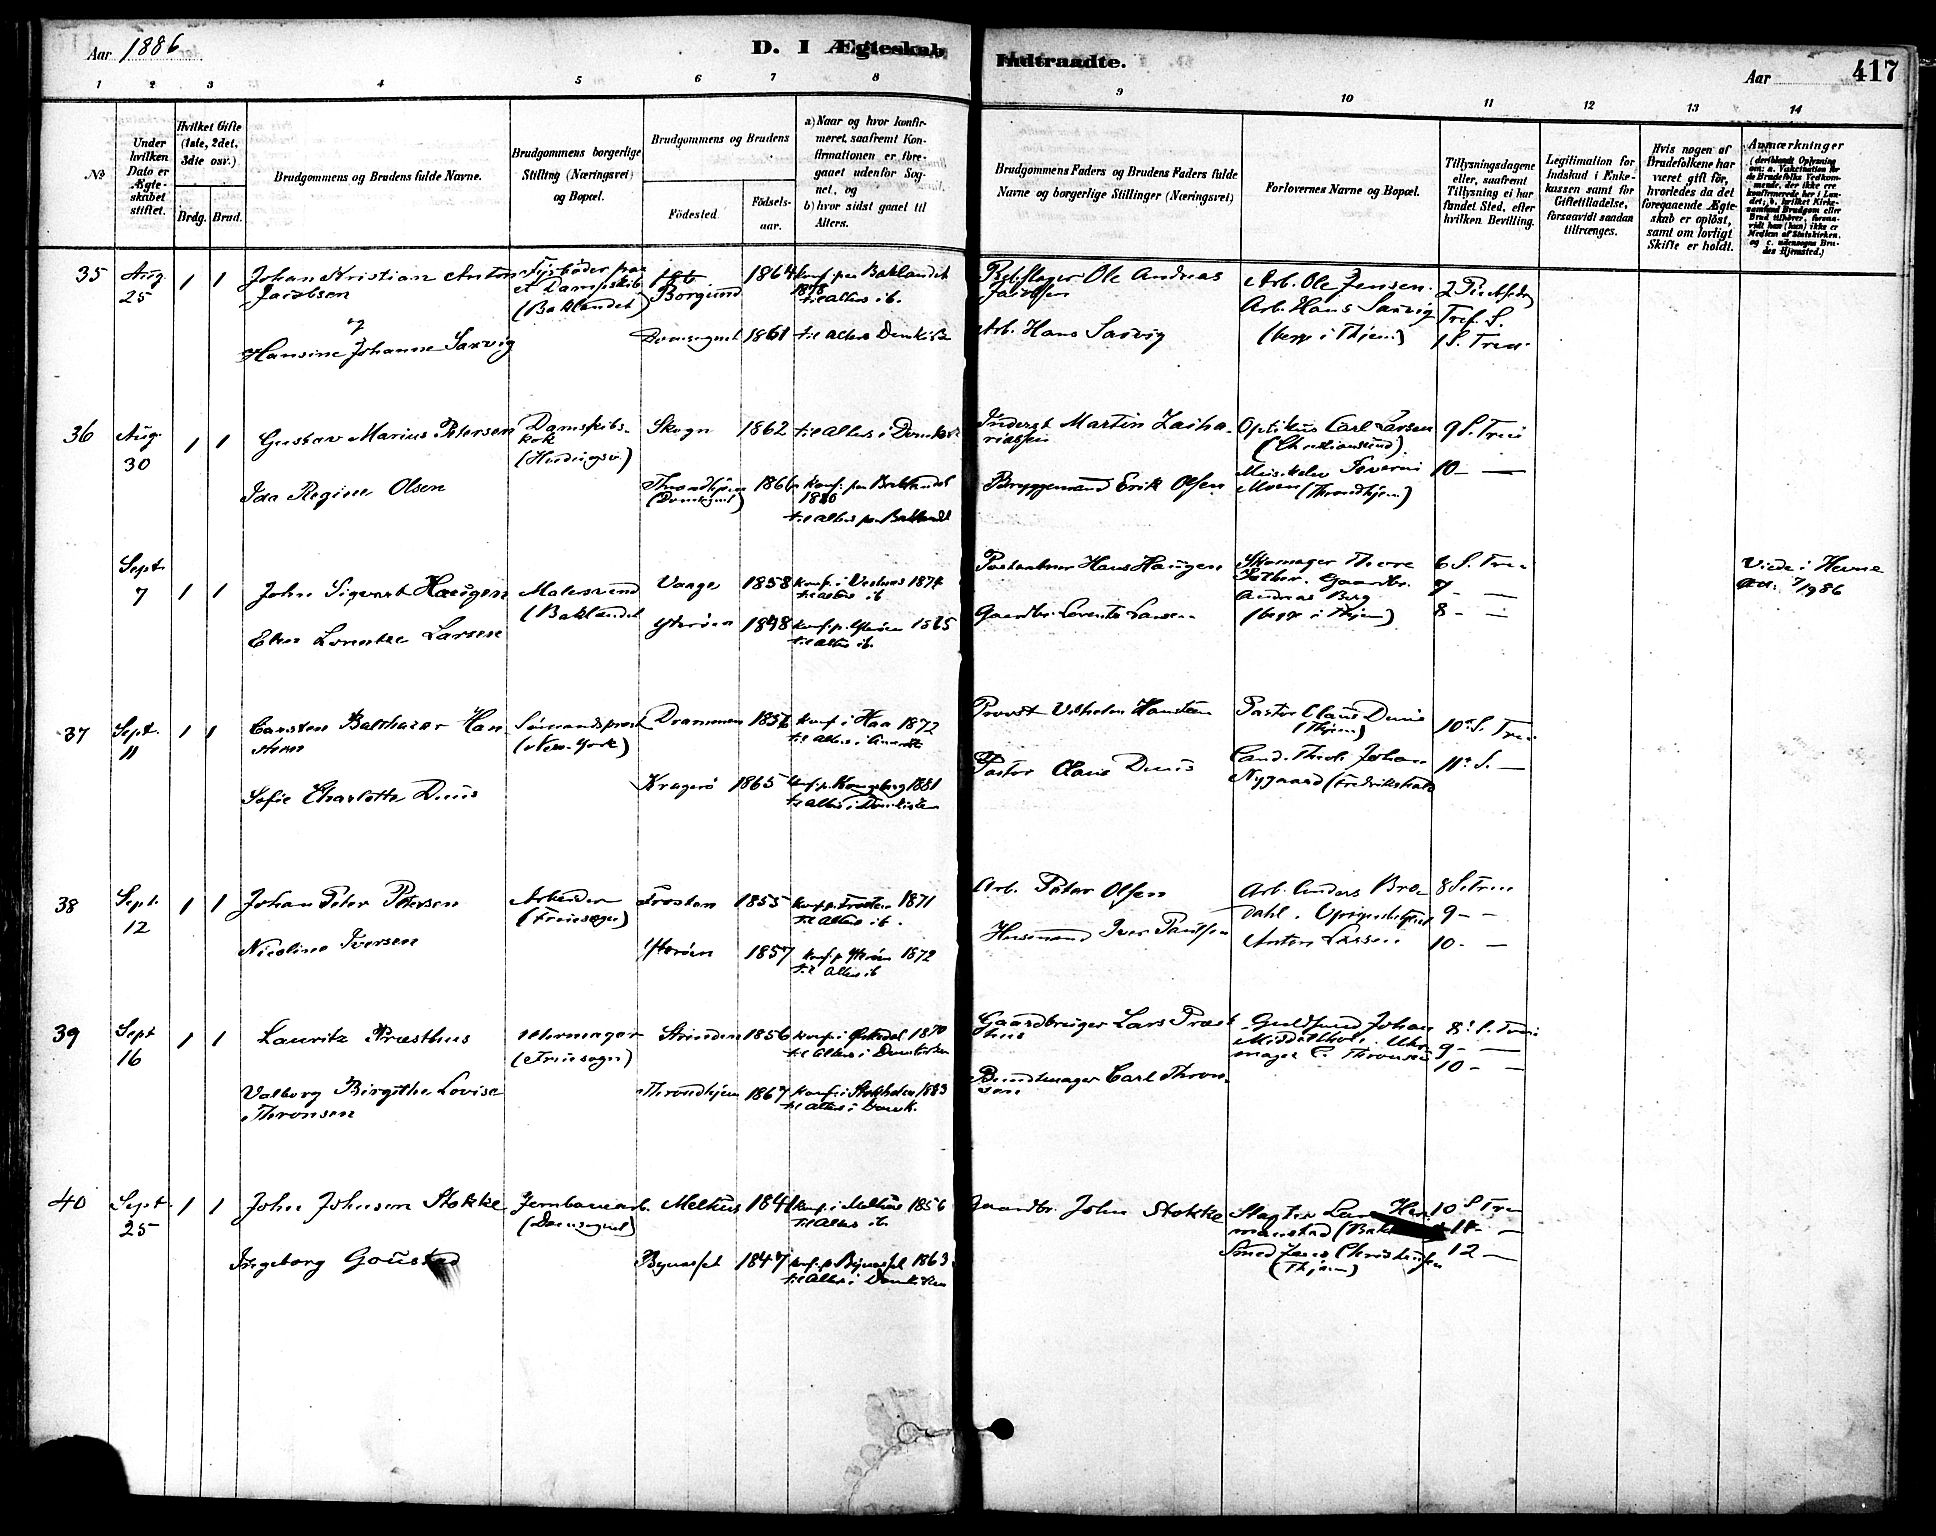 Aar 1886
D. I Ægteskab Indtraadte.
Aar
417
1 2 3 4 5 6 7 8 9 10 11 12 13 14
No
Under hvilken Dato er Ægteskabet stiftet.
Hvilket Gifte (1ste, 2det, 3die osv.)
Brdg. Brud.
Brudgommens og Brudens fulde Navne.
Brudgommens borgerlige Stilling (Næringsvei) og Bopæl.
Brudgommens og Brudens
Födested
Födselsaar.
a) Naar og hvor konfirmeret, saafremt Konfirmationen er foregaaet udenfor Sognet, og
b) hvor sidst gaaet til Alters.
Brudgommens Faders og Brudens Faders fulde Navne og borgerlige Stillinger (Næringsvei)
Forlovernes Navne og Bopæl.
Tillysningsdagene eller, saafremt Tillysning ei har fundet Sted, efter hvilken Bevilling.
Legitimation for Indskud i Enkekassen samt for Giftetilladelse, forsaavidt saadan tiltrænges.
Hvis nogen af Brudefolkene har været gift för, hvorledes da det foregaaende Ægteskab er oplöst, samt om lovligt Skifte er holdt.
Anmærkninger
35 Aug. 25 1 1
Johan Kristian Anton Jacobsen
og
Hansine Johanne Saxvig
Fyrbøder paa et Dampskib (Baklandet)
Borgund 1864 Konf. paa Baklandet 1878 til alters ib.
Domsognet 1861 til alters Domkirk
Rebslager Ole Andreas Jacobsen
Arb. Hans Saxvig
Arb. Ole Jensen.
Arb. Hans Saxvig
(begge i Thjem)
Tref. S.
1 S. Tref.
36 Aug. 30 1 1
Gustav Marius Petersen
Ida Regine Olsen
Dampskibskok
Skogn 1862 til alters i Domk.
Throndhjem (Domsognet) 1866 Konf. paa Baklandet 1880
til alters paa Baklandet
Martin Zachariassen
Bryggemand Erik Olsen
Optikus Carl Larsen (Christiansund)
Moen (Throndhjem)
9 S. Tref.
10 — —
Sept. 7 1 1
John Sigvart Haugen
Elen Lorentze Larsen
Malersvend (Baklandet
Vaage 1858 Konf. i Vestnes 1874 til alters ib
Ytterøen 1848 Konf. p. Ytterøen 1865 til alters ib.
Hans Haugen
Gaardbr. Lorents Larsen
Skomager Gaardbr. Andreas Berg
(begge i Thjem)
6 S. Tref.
7 — —
8 — —
Viede i Hevne 7/9 86
37 Sept. 11 1 1
Carsten Balthazar Hansteen
Sofie Charlotte Duus
Sømandsprest (New-York)
Drammen 1856 Konf. i Haa 1872
Kragerø 1865 Konf. p. Kongsberg 1881 til alters i Domkirken
Provst Vilhelm Hansteen
Pastor Claus Duus
Pastor Claus Duus (Thjem)
Cand. Theol. Johan Nygaard (Fredrikshald
10. S. Tref.
11. S. —
38 Sept. 12 1 1
Johan Peter Petersen
Nicoline Iversen
Arbeider (Fruesogn)
Frosten 1855 Konf. p. Frosten 1871 til alters ib.
Ytterøen 1857 Konf. p. Ytterøen 1872 til alters ib
Arb. Peter Olsen
Husmand Iver Paulsen
Arb. Anders Brodahl.
Anton Larsen
8 S. Tref.
9 — —
10 — —
39 Sept 16 1 1
Lauritz Præsthus
Valborg Birgithe Lovise Thronsen
Uhrmager (Fruesogn)
Strinden 1856 Konf. i Ørkedal 1870 til alters i Domkirken
Throndhjem 1867 Konf. i Stokholm 1883 til alters i Domk.
Gaardbruger Lars Præsthus
Bundtmager Carl Thronsen
Guldsmed Johan Middelthon. Uhrmager C. Thronsen
8. S. Tref.
9 — —
10 — —
40 Sept 25 1 1
John Johnsen Stokke
Ingeborg Goustad
Jernbanearb. (Domsognet)
Melhus 1841 Konf. i Melhus 1856 til alters ib.
Bynæsset 1847 Konf. p. Bynæsset 1863 til alters i Domkirken
Gaardbr. John Stokke
Slagter Lars Hermanstad
Smed Jens Christensen (Thjem)
10 S Tref
11 — —
12 —